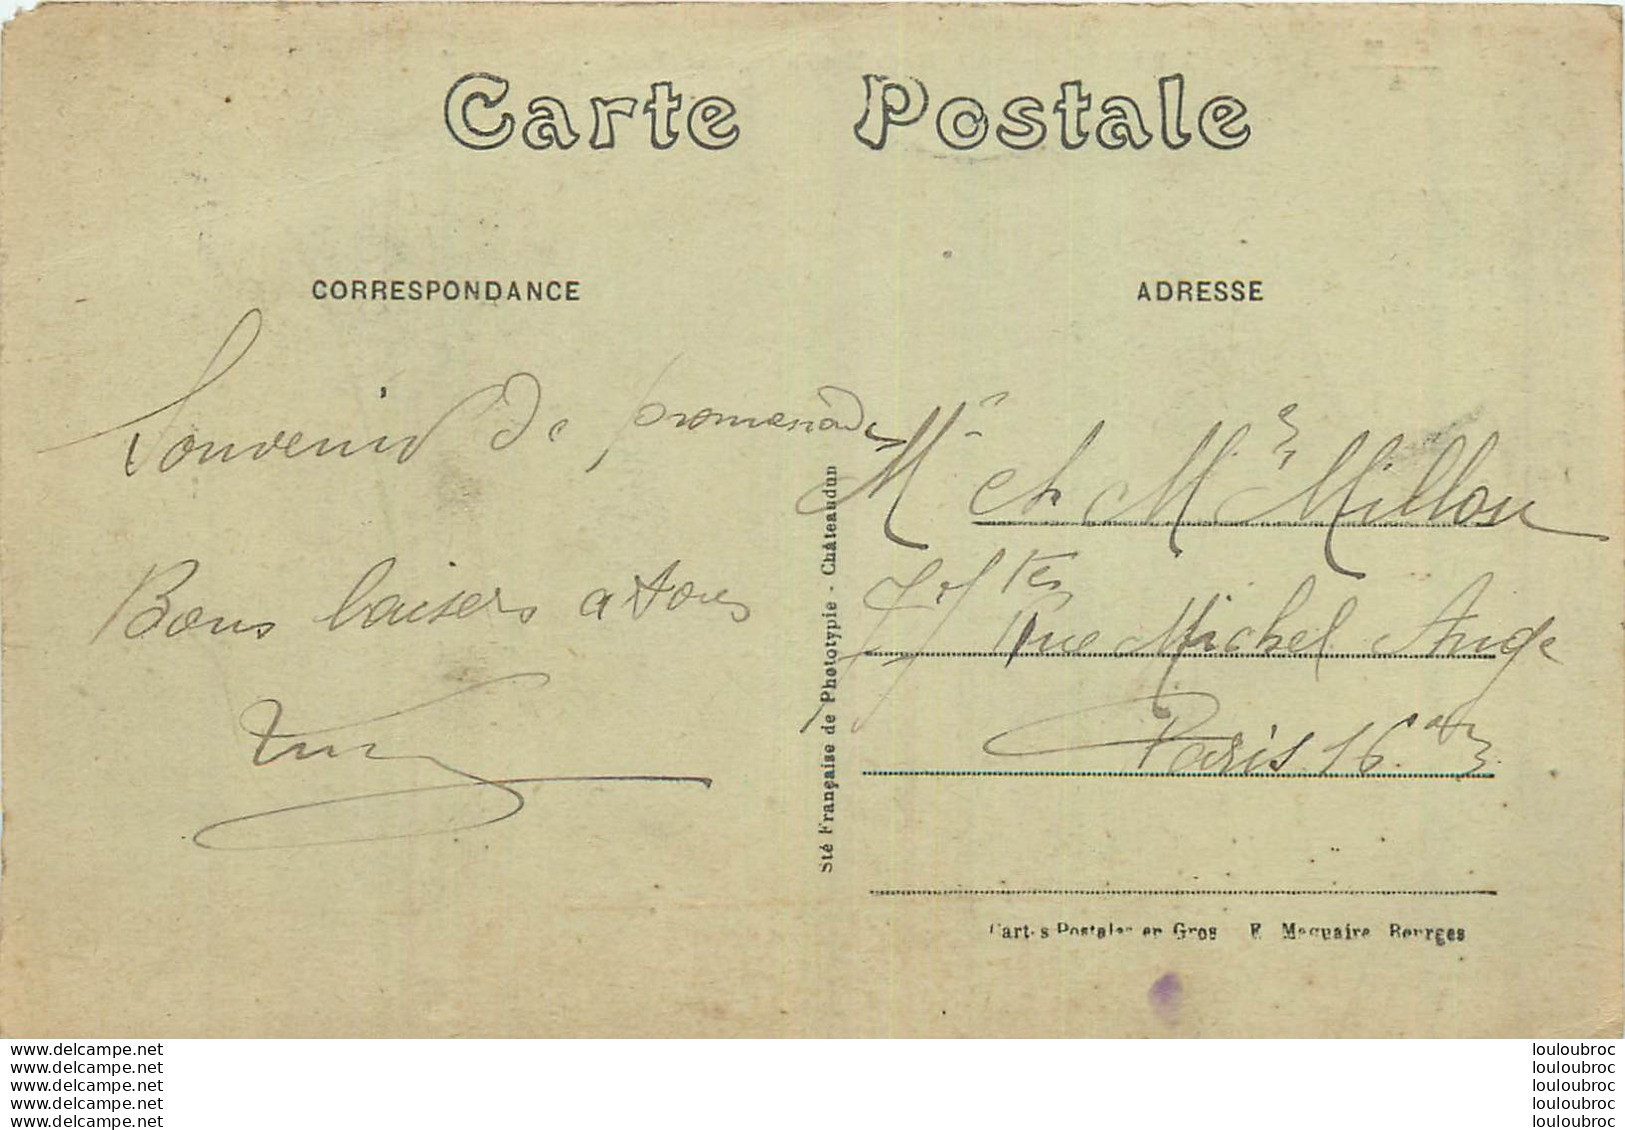 Carte Postale
CORRESPONDANCE
ADRESSE
Souvenir de promenade
Bons baisers a tous
Mr et Mme Millou
Rue Michel Ange
Paris 16
Sté Française de Phototypie - Châteaudun
Cartes Postales en Gros E. Maquaire Bourges
www.delcampe.net
www.delcampe.net
www.delcampe.net
www.delcampe.net
www.delcampe.net
louloubroc
louloubroc
louloubroc
louloubroc
louloubroc